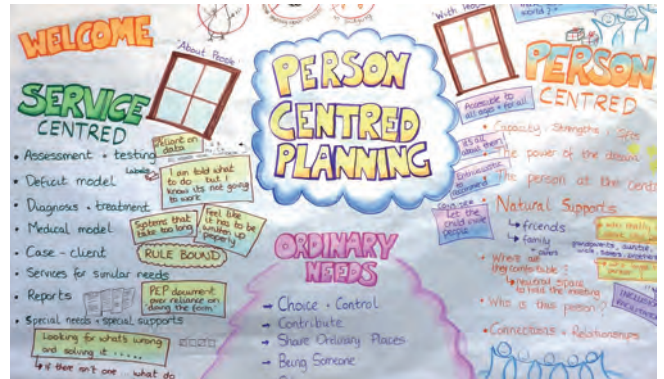 WELCOME
"About People"
SERVICE
CENTRED
• Assessment + testing
labels
• Deficit model
• Diagnosis + treatment
• Medical model
• Case - client
• Services for similar needs
• Reports
• Special needs + special supports
Reliant on
data
I am told what
to do but I
know its not going
to work
Systems that
take too long
Feel like
it has to be
written up
properly
RULE BOUND
PEP document
over reliance on
'doing the form'
Looking for whats wrong
and solving it .....
↳ if there isnt one ... what do
PERSON
CENTRED
PLANNING
ORDINARY
NEEDS
→ Choice + Control
→ Contribute
→ Share Ordinary Places
→ Being Someone
"With People"
world?"
PERSON
CENTRED
Accessible to
all ages + for all
its all
about them
Let the
child invite
people
• Capacity, strengths, gifts
• The power of the dream
• The person at the cent
• Natural Supports
↳ friends
↳ family
• Where are
they comfortable?
↳ neutral space
to hold the meeting
• Who is this person?
• Connections + Relationships
INCLUSIVE